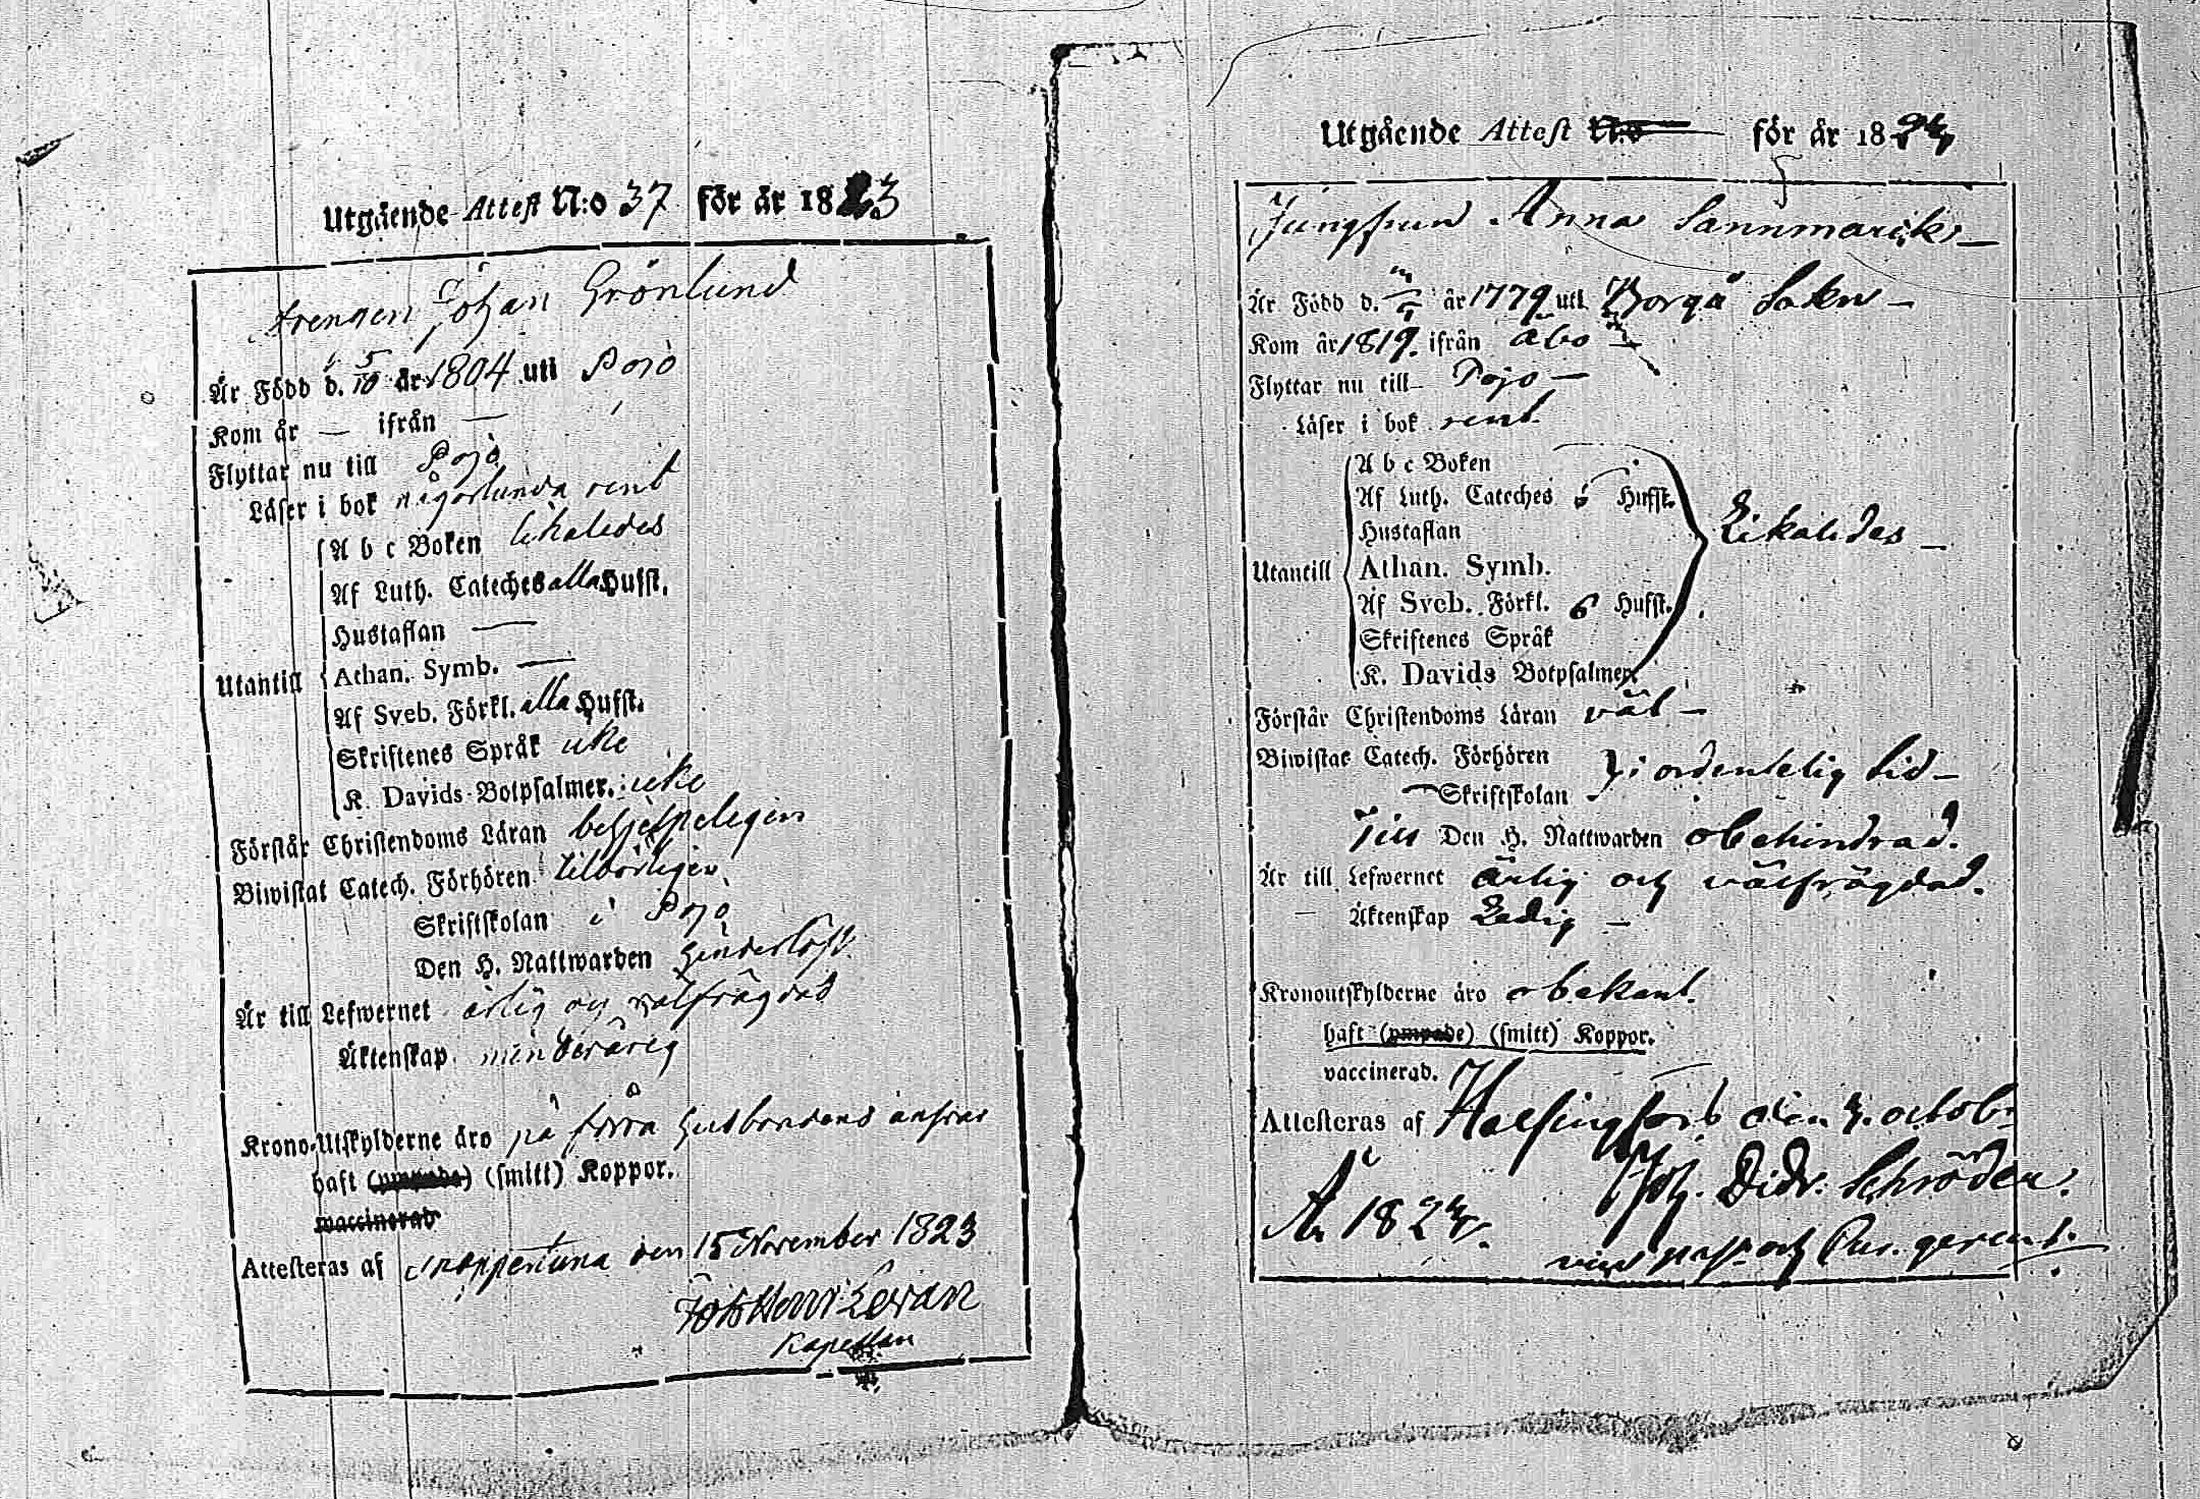 Utgående Attest N:o 37 för år 1823
Drengen Johan Grönlund
Är Född d. 5/10 år 1804 uti Pojo
Kom år — ifrån —
Flyttar nu till Pojo
Läser i bok någorlunda rent
A b c Boken likaledes
Af Luth. Cateches alla Hufst.
Hustaflan —
Utantill Athan. Symb. —
Af Sveb. Förkl. alla Hufst.
Skriftenes Språk icke
K. Davids Botpsalmer. icke
Förstår Christendoms Läran behjelpeligen
Biwistat Catech. Förhören tilbörligen
Skriftskolan i Pojo
Den H. Nattwarden hinderlöst.
Är till Lefwernet ärlig och välfrägdad
Äktenskap minderårig
Krono-Utskylderne äro på förra husbondens ansvar
haft (smitt) Koppor.
waccinerad
Attesteras af Snappertuna den 15 November 1823
Joh Henr
Kapellan
Utgående Attest N:o för år 1824
Jungfrun Anna Sannmarck —
Är Född d. år 1779 uti Borgå Sokn —
Kom år 1819. ifrån Åbo —
Flyttar nu till Pojo —
Läser i bok rent.
A b c Boken
Af Luth. Cateches 6 Hufst.
Hustaflan
Utantill Athan. Symb. Likaledes —
Af Sveb. Förkl. 6 Hufst.
Skriftenes Språk
K. Davids Botpsalmer
Förstår Christendoms Läran väl —
Biwistat Catech. Förhören
Skriftskolan i ordentelig tid —
Till Den H. Nattwarden obehindrad.
Är till Lefwernet ärlig och välfrägdad.
— Äktenskap Ledig —
Kronoutskylderne äro obekant.
haft (smitt) Koppor.
vaccinerad.
Attesteras af Helsingfors den 4. octob:
År 1824. Joh. Didr. Schröder.
vice past. och Cur. gerent.